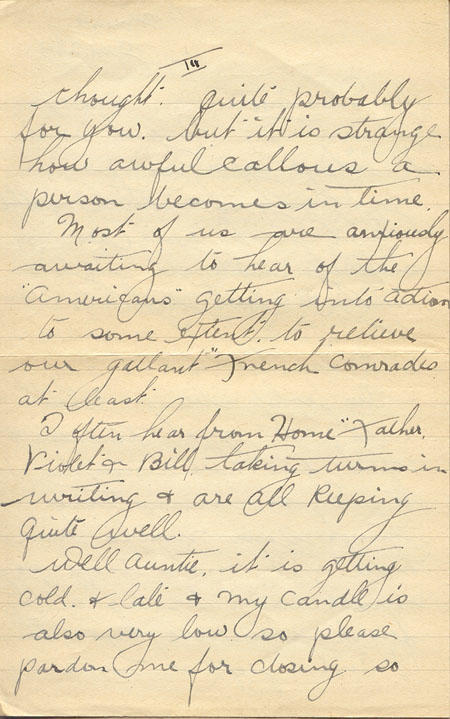 III
thought. quite probably
for you. but it is strange
how awful callous a
person becomes in time.
Most of us are anxiously
awaiting to hear of the
"Americans" getting into action
to some extent. to relieve
our gallant "French Comrades
at least.
I often hear from Home" Father,
Violet & Bill, taking turns in
writing & are all keeping
quite well.
Well Auntie. it is getting
cold. & late & my candle is
also very low so please
pardon me for closing so